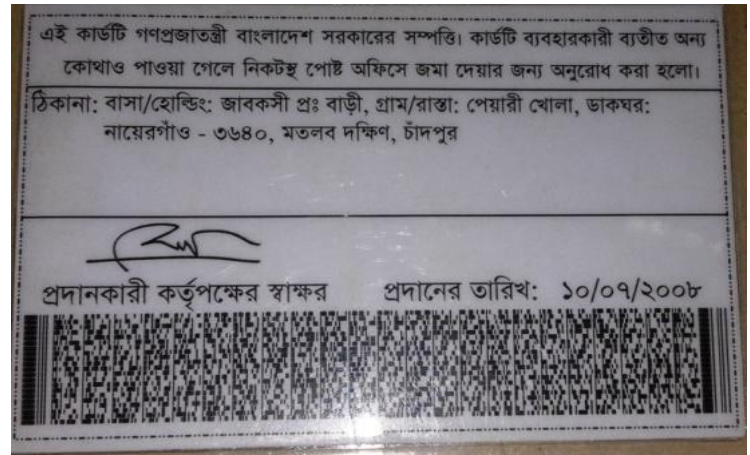 এই কার্ডটি গণপ্রজাতন্ত্রী বাংলাদেশ সরকারের সম্পত্তি। কার্ডটি ব্যবহারকারী ব্যতীত অন্য
কোথাও পাওয়া গেলে নিকটস্থ পোষ্ট অফিসে জমা দেয়ার জন্য অনুরোধ করা হলো।
ঠিকানা: বাসা/হোল্ডিং: জাবকসী প্রঃ বাড়ী, গ্রাম/রাস্তা: পেয়ারী খোলা, ডাকঘর:
নায়েরগাঁও - ৩৬৪০, মতলব দক্ষিণ, চাঁদপুর
প্রদানকারী কর্তৃপক্ষের স্বাক্ষর প্রদানের তারিখ: ১০/০৭/২০০৮